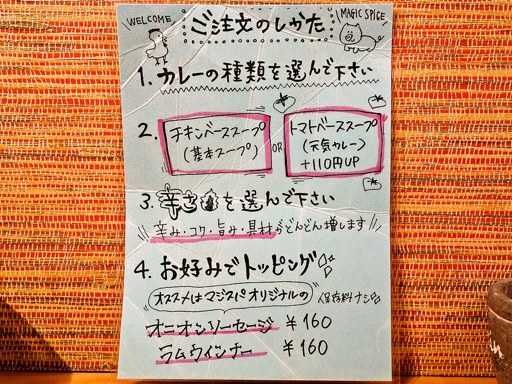 WELCOME
ご注文のしかた
MAGIC SPICE
1. カレーの種類を選んで下さい
2. チキンベーススープ
(基本スープ)
OR
トマトベーススープ
(元気カレー)
+110円UP
3. 辛さを選んで下さい
辛み・コク・旨み・具材がどんどん増します
4. お好みでトッピング
オススメはマジスパオリジナルの
保存料ナシ
オニオンソーセージ ¥160
ラムウインナー ¥160